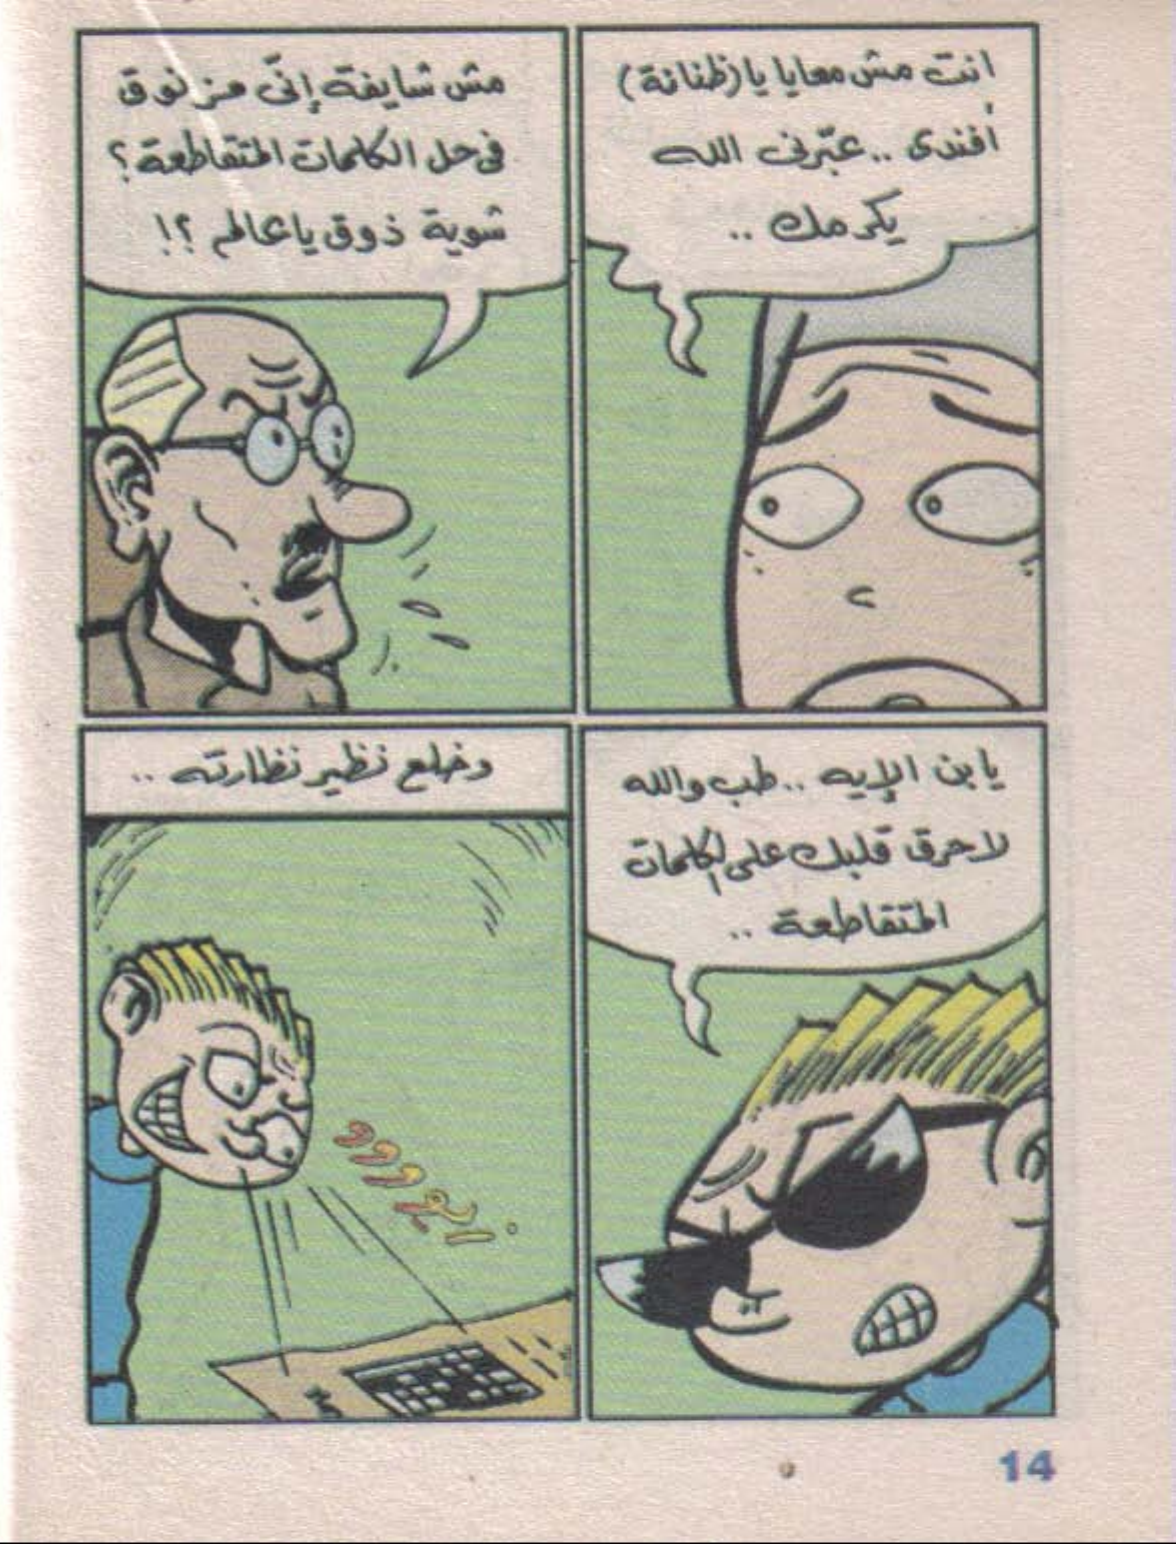 انت مش معايا يا (ظنانة)
أفندى .. عبّرنى الله
يكرمك ..
مش شايفة إنّى مزنوق
فى حل الكلمات المتقاطعة ؟
شوية ذوق يا عالم ؟!
يا بن الإيه .. طب والله
لاحرق قلبك على الكلمات
المتقاطعة ..
وخلع نظير نظارته ..
14